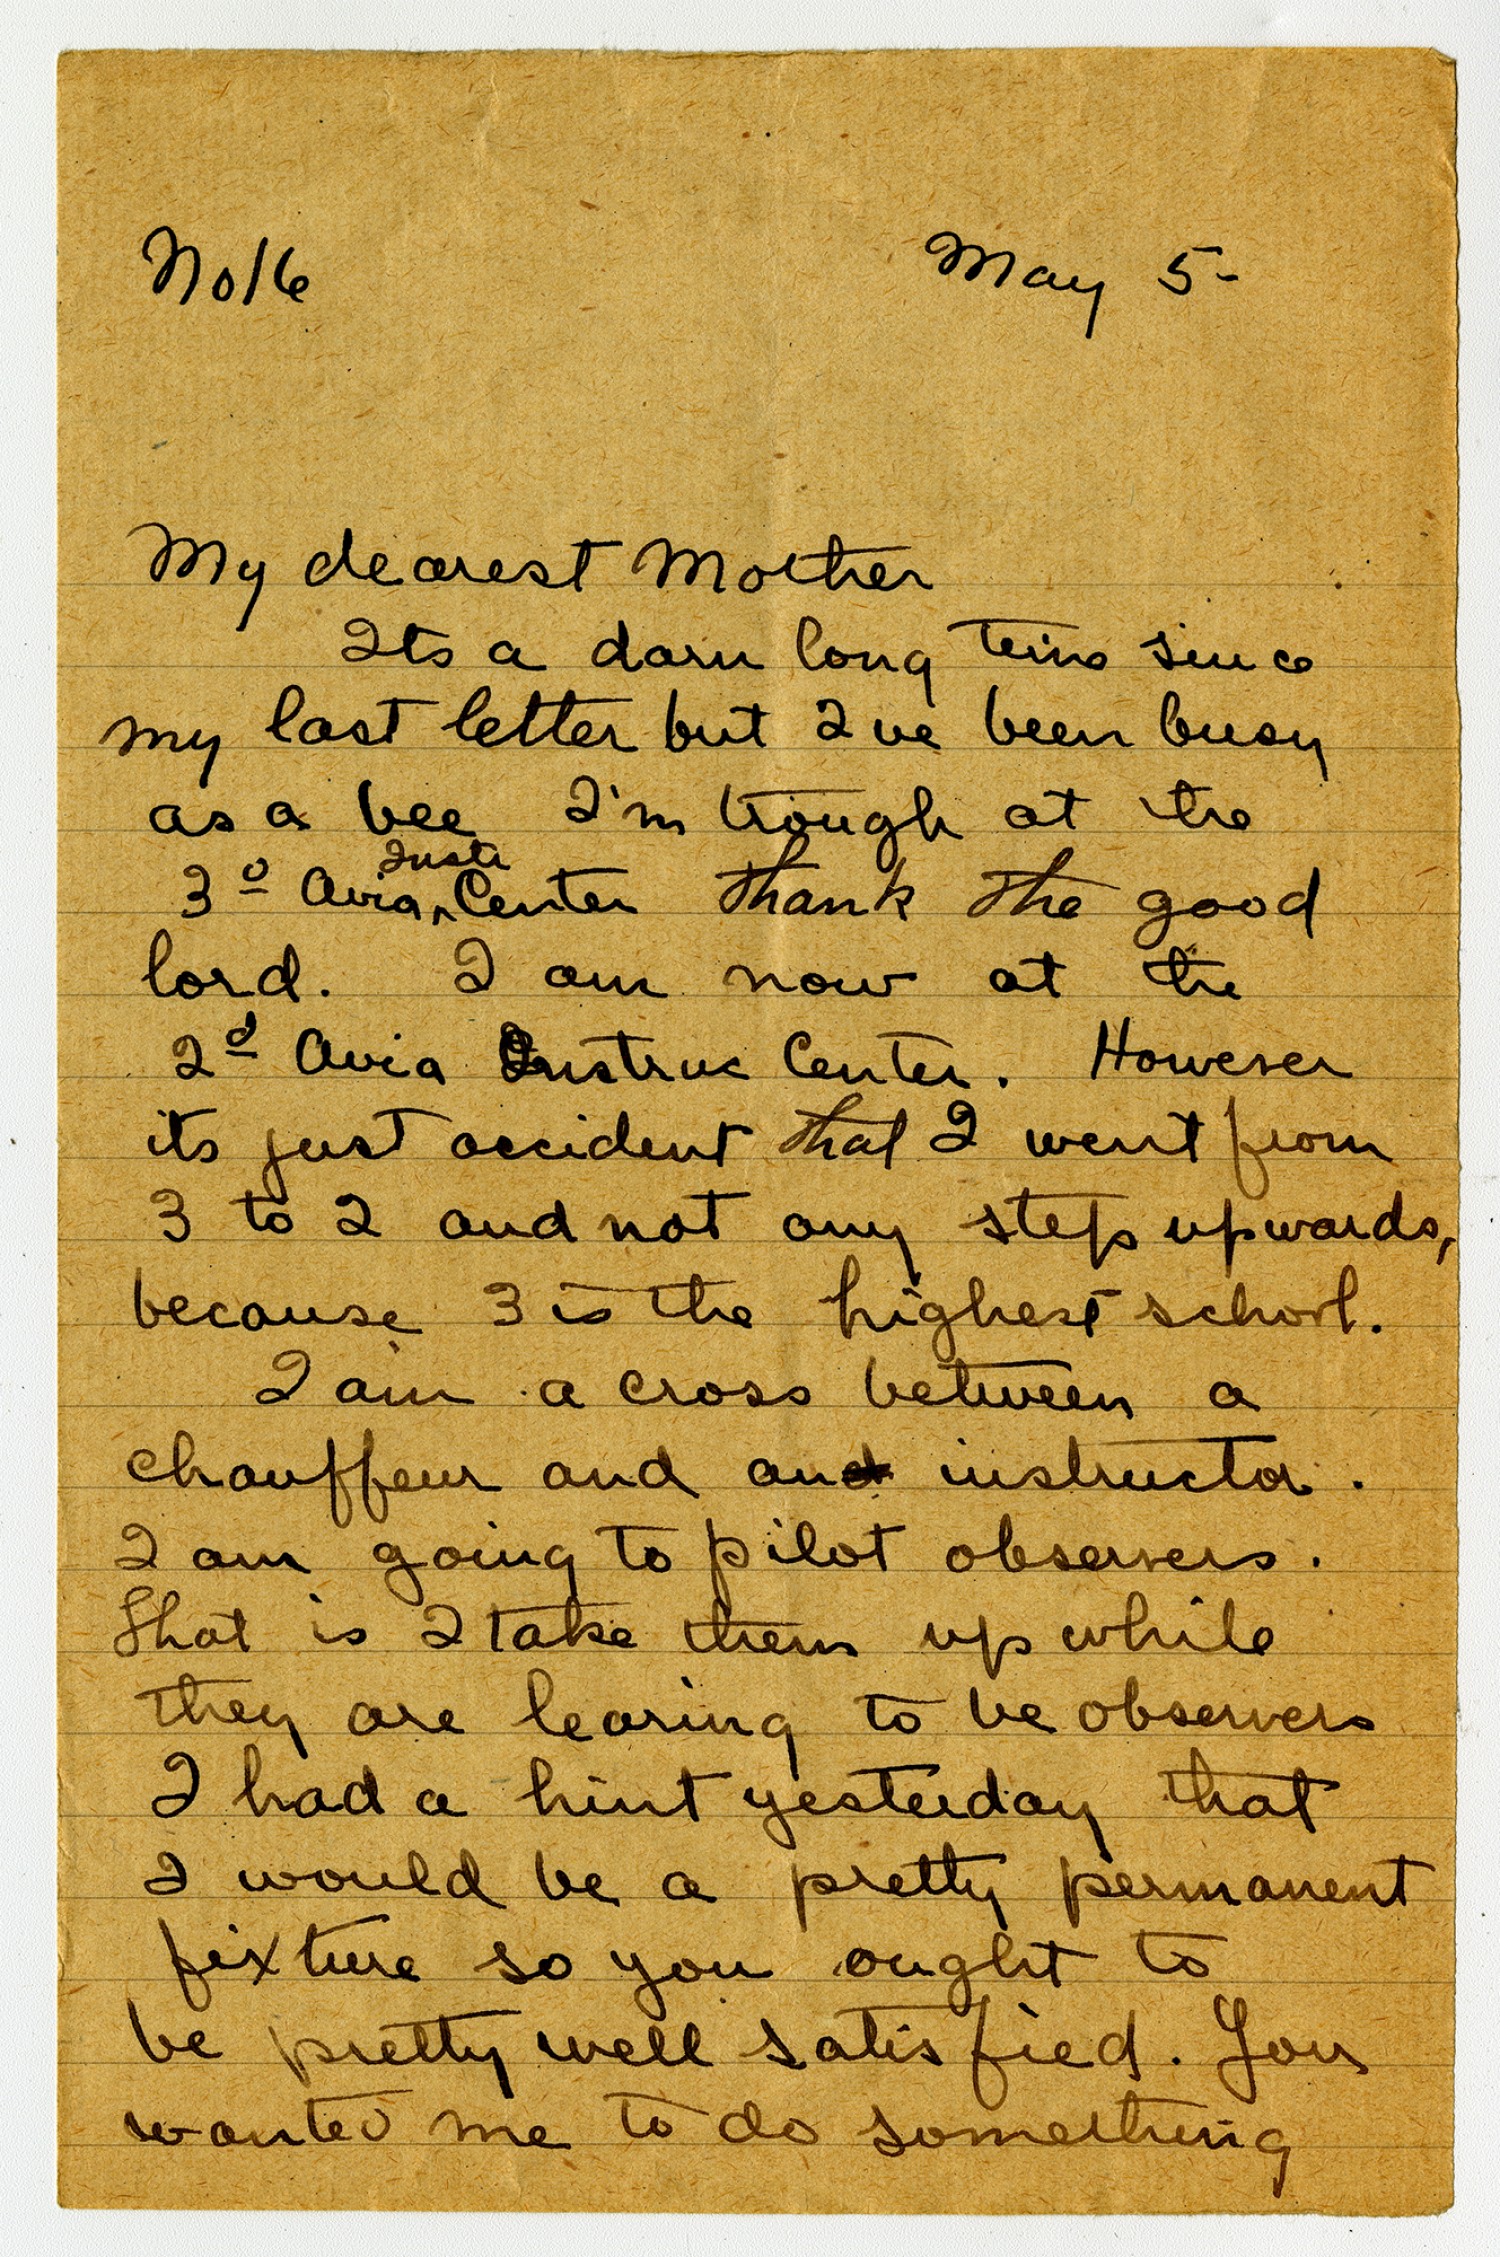 No 16 May 5-
My dearest Mother
Its a darn long time since
my last letter but I ve been busy
as a bee I'm trough at the
Instr
3d Avia ^ Center thank the good
lord. I am now at the
2d Avia Instruc Center. However
its just accident that I went from
3 to 2 and not any step upwards,
because 3 is the highest school.
I am a cross between a
chauffeur and an instructor.
I am going to pilot observers.
That is I take them up while
they are learing to be observers
I had a hint yesterday that
I would be a pretty permanent
fixture so you ought to
be pretty well satisfied. You
wanted me to do something